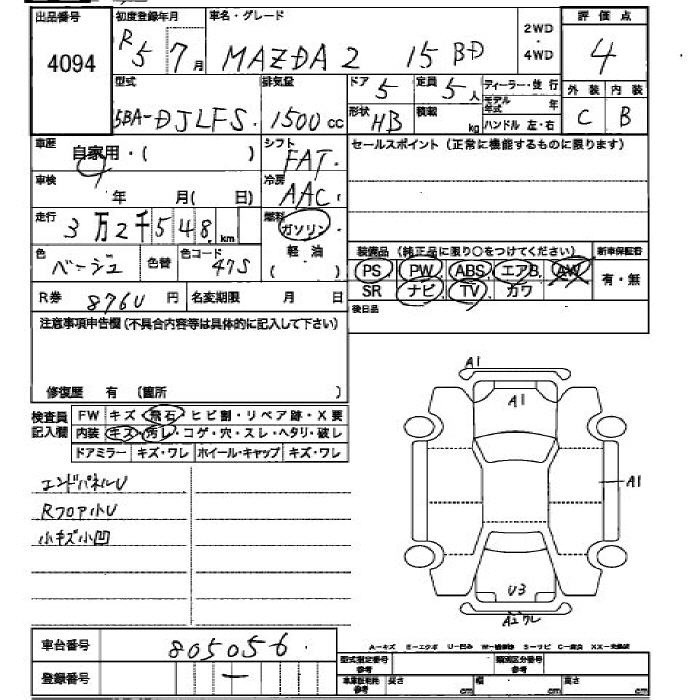 出品番号 初度登録年月 車名・グレード 2WD・4WD 評価点
4094 R5 7月 MAZDA2 15BD 4
型式 排気量 ドア 定員 ディーラー・並行 外装 内装
5BA-DJLFS. 1500cc 5 5人 モデル年式 年 C B
形状 HB 積載 kg ハンドル 左・右
車歴 自家用・( ) シフト FAT. セールスポイント (正常に機能するものに限ります)
車検 年 月( 日) 冷房 AAC
走行 3万2千548.km 燃料 ガソリン
軽・油 ( )
色 ベージュ 色替 色コード 47S
装備品 (純正品に限り○をつけてください) 新車保証書
PS PW ABS エアB AW 有・無
SR ナビ TV カワ
R券 8760円 名変期限 月 日 後日品
注意事項申告欄(不具合内容等は具体的に記入して下さい)
修復歴 有 (箇所 )
検査員記入欄 FW キズ・飛石・ヒビ割・リペア跡・X要
内装 キズ・汚レ・コゲ・穴・スレ・ヘタリ・破レ
ドアミラー キズ・ワレ ホイール・キャップ キズ・ワレ
エンドパネルU
Rフロア小U
小キズ小凹
A1
A1
A1
U3
A2ワレ
車台番号 805056
登録番号 -
A-キズ E-エクボ U-凹み W-補修跡 S-サビ C-腐食 XX-交換済
型式指定番号 参考 類別区分番号 参考
車庫証明用 参考 長さ cm 幅 cm 高さ cm